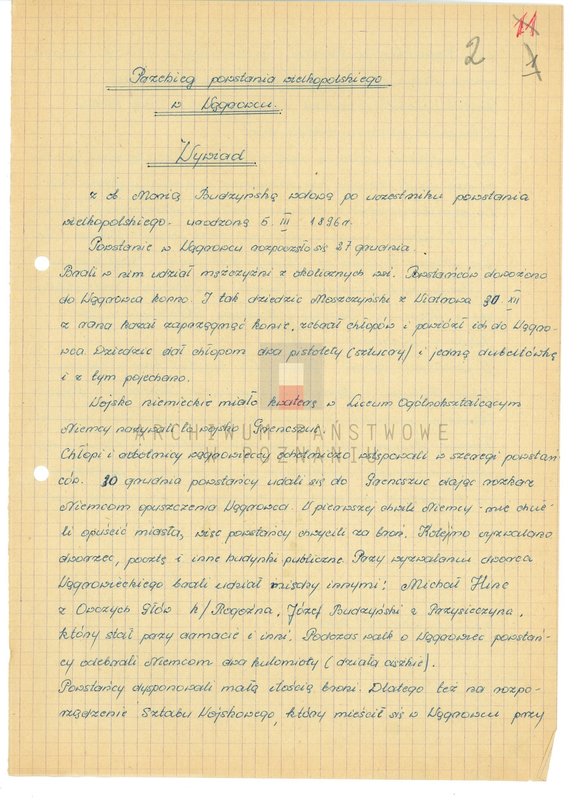 11
2
1
Przebieg powstania wielkopolskiego
w Wągrowcu.
Wywiad
z ob. Marią Budzyńską wdową po uczestniku powstania
wielkopolskiego. urodzoną 6 III 1896 r.
Powstanie w Wągrowcu rozpoczęło się 27 grudnia.
Brali w nim udział mężczyźni z okolicznych wsi. Powstańców dowożono
do Wągrowca konno. I tak dziedzic Moszczyński z Wiatrowa 30 XII
z rana kazał zaprzęgnąć konie, zebrał chłopów i powiózł ich do Wągro-
wca. Dziedzic dał chłopom dwa pistolety (sztucery) i jedną dubeltówkę
i z tym pojechano.
Wojsko niemieckie miało kwaterę w Liceum Ogólnokształcącym
Niemcy nazywali to wojsko Grenszuc.
ARCHIWUM PAŃSTWOWE
W POZNANIU
Chłopi i robotnicy wągrowieccy ochotniczo wstępowali w szeregi powstań
ców. 30 grudnia powstańcy udali się do Grenszuc dając rozkaz
Niemcom opuszczenia Wągrowca. W pierwszej chwili Niemcy nie chcie-
li opuścić miasta, więc powstańcy chwycili za broń. Kolejno wyzwalano
dworzec, pocztę i inne budynki publiczne. Przy wyzwalaniu dworca
Wągrowieckiego brali udział między innymi: Michał Hinc
z Owczych Głów k/Rogoźna, Józef Budzyński z Przysieczyna,
który stał przy armacie i inni. Podczas walk o Wągrowiec powstań-
cy odebrali Niemcom dwa kulomioty (działa ciężkie).
Powstańcy dysponowali małą ilością broni. Dlatego też na rozpo-
rządzenie Sztabu Wojskowego, który mieścił się w Wągrowcu przy